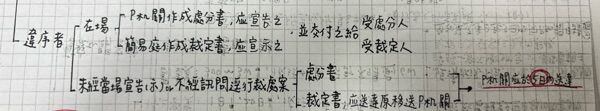 違序者
在場
P机關作成處分書,应宣告之
簡易庭作成裁定書,应宣示之
,並交付之給
受處分人
受裁定人
未經當場宣告(示)or不經訊問逕行裁處案
處分書
裁定書,应送達原移送P机關
P机關应於5日內送達